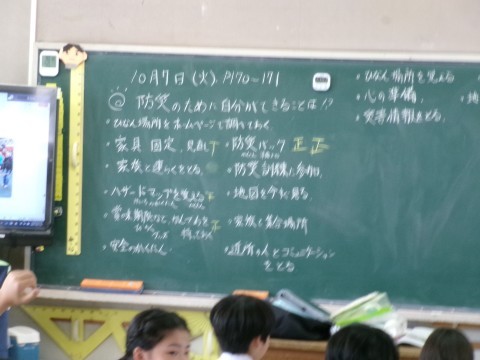 10月7日(火) P170~171
@ 防災のために自分ができることは!?
・ひなん場所をホームページで調べておく
・家具固定、見直し
・家族と連らくをとる。
・ハザードマップを覚える
・賞味期限など
・安全のかくにん
・防災バック 正 正
・防災訓練に参加
・地図を今すぐ見る
・家族と集合場所
・近所の人とコミュニケーションをとる
・ひなん場所を覚える
・心の準備、
・災害情報をとる。
・地